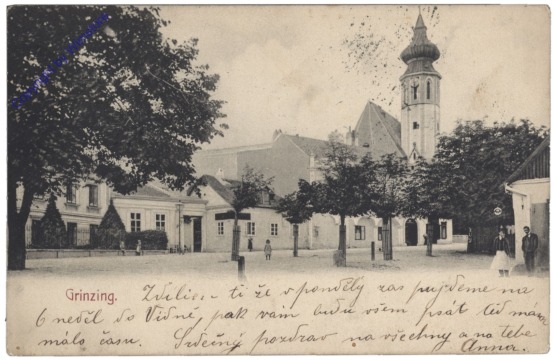 Grinzing.
Zdelim ti že v pondělý zas pujdeme na
6 neděl do Vídně, pak vám budu všem psát teď mám
málo času. Srdečný pozdrav na všechny a na tebe
Anna.